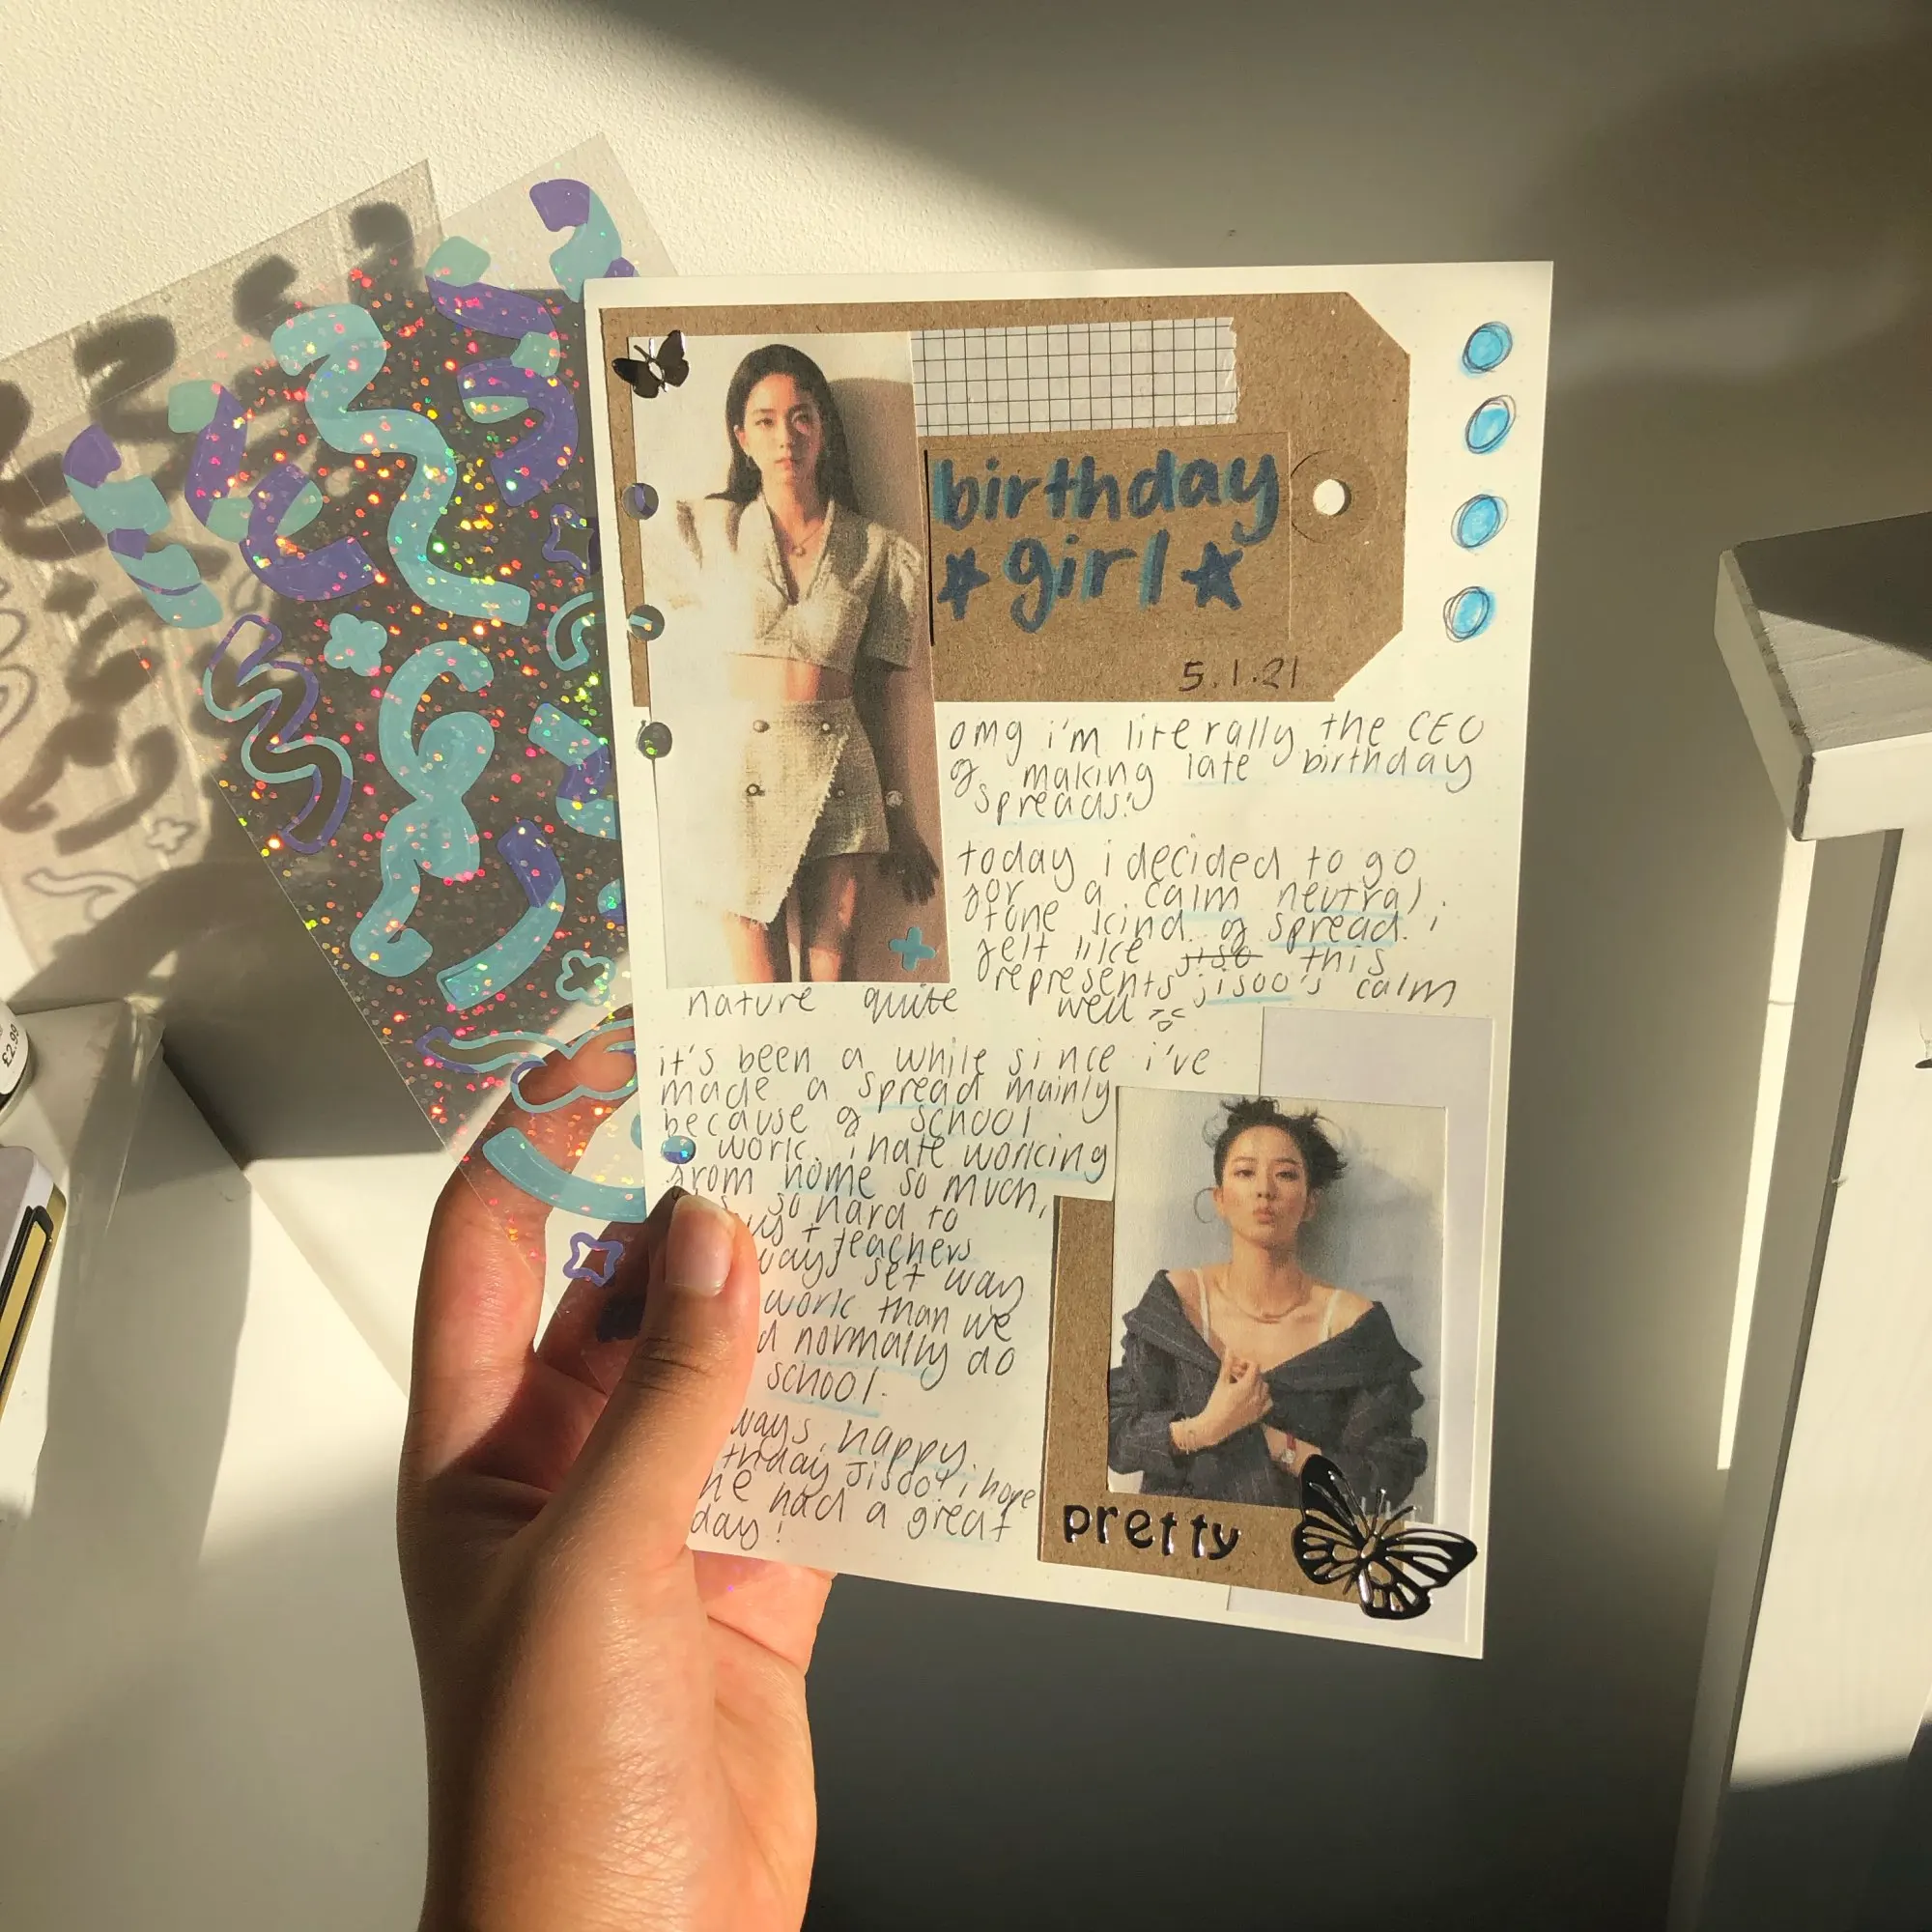 birthday
girl
5.1.21
omg i'm literally the CEO
of making late birthday
spreads!
today i decided to go
for a calm neutral
tone kind of spread. i
felt like jiso this
represents jisoo's calm
nature quite well
it's been a while since i've
made a spread mainly
because of school
work. i hate working
from home so much,
so hard to
+ teachers
set way
work than we
normally do
school.
ways, happy
thday Jisoo! i hope
he had a great
day!
pretty
£2.99